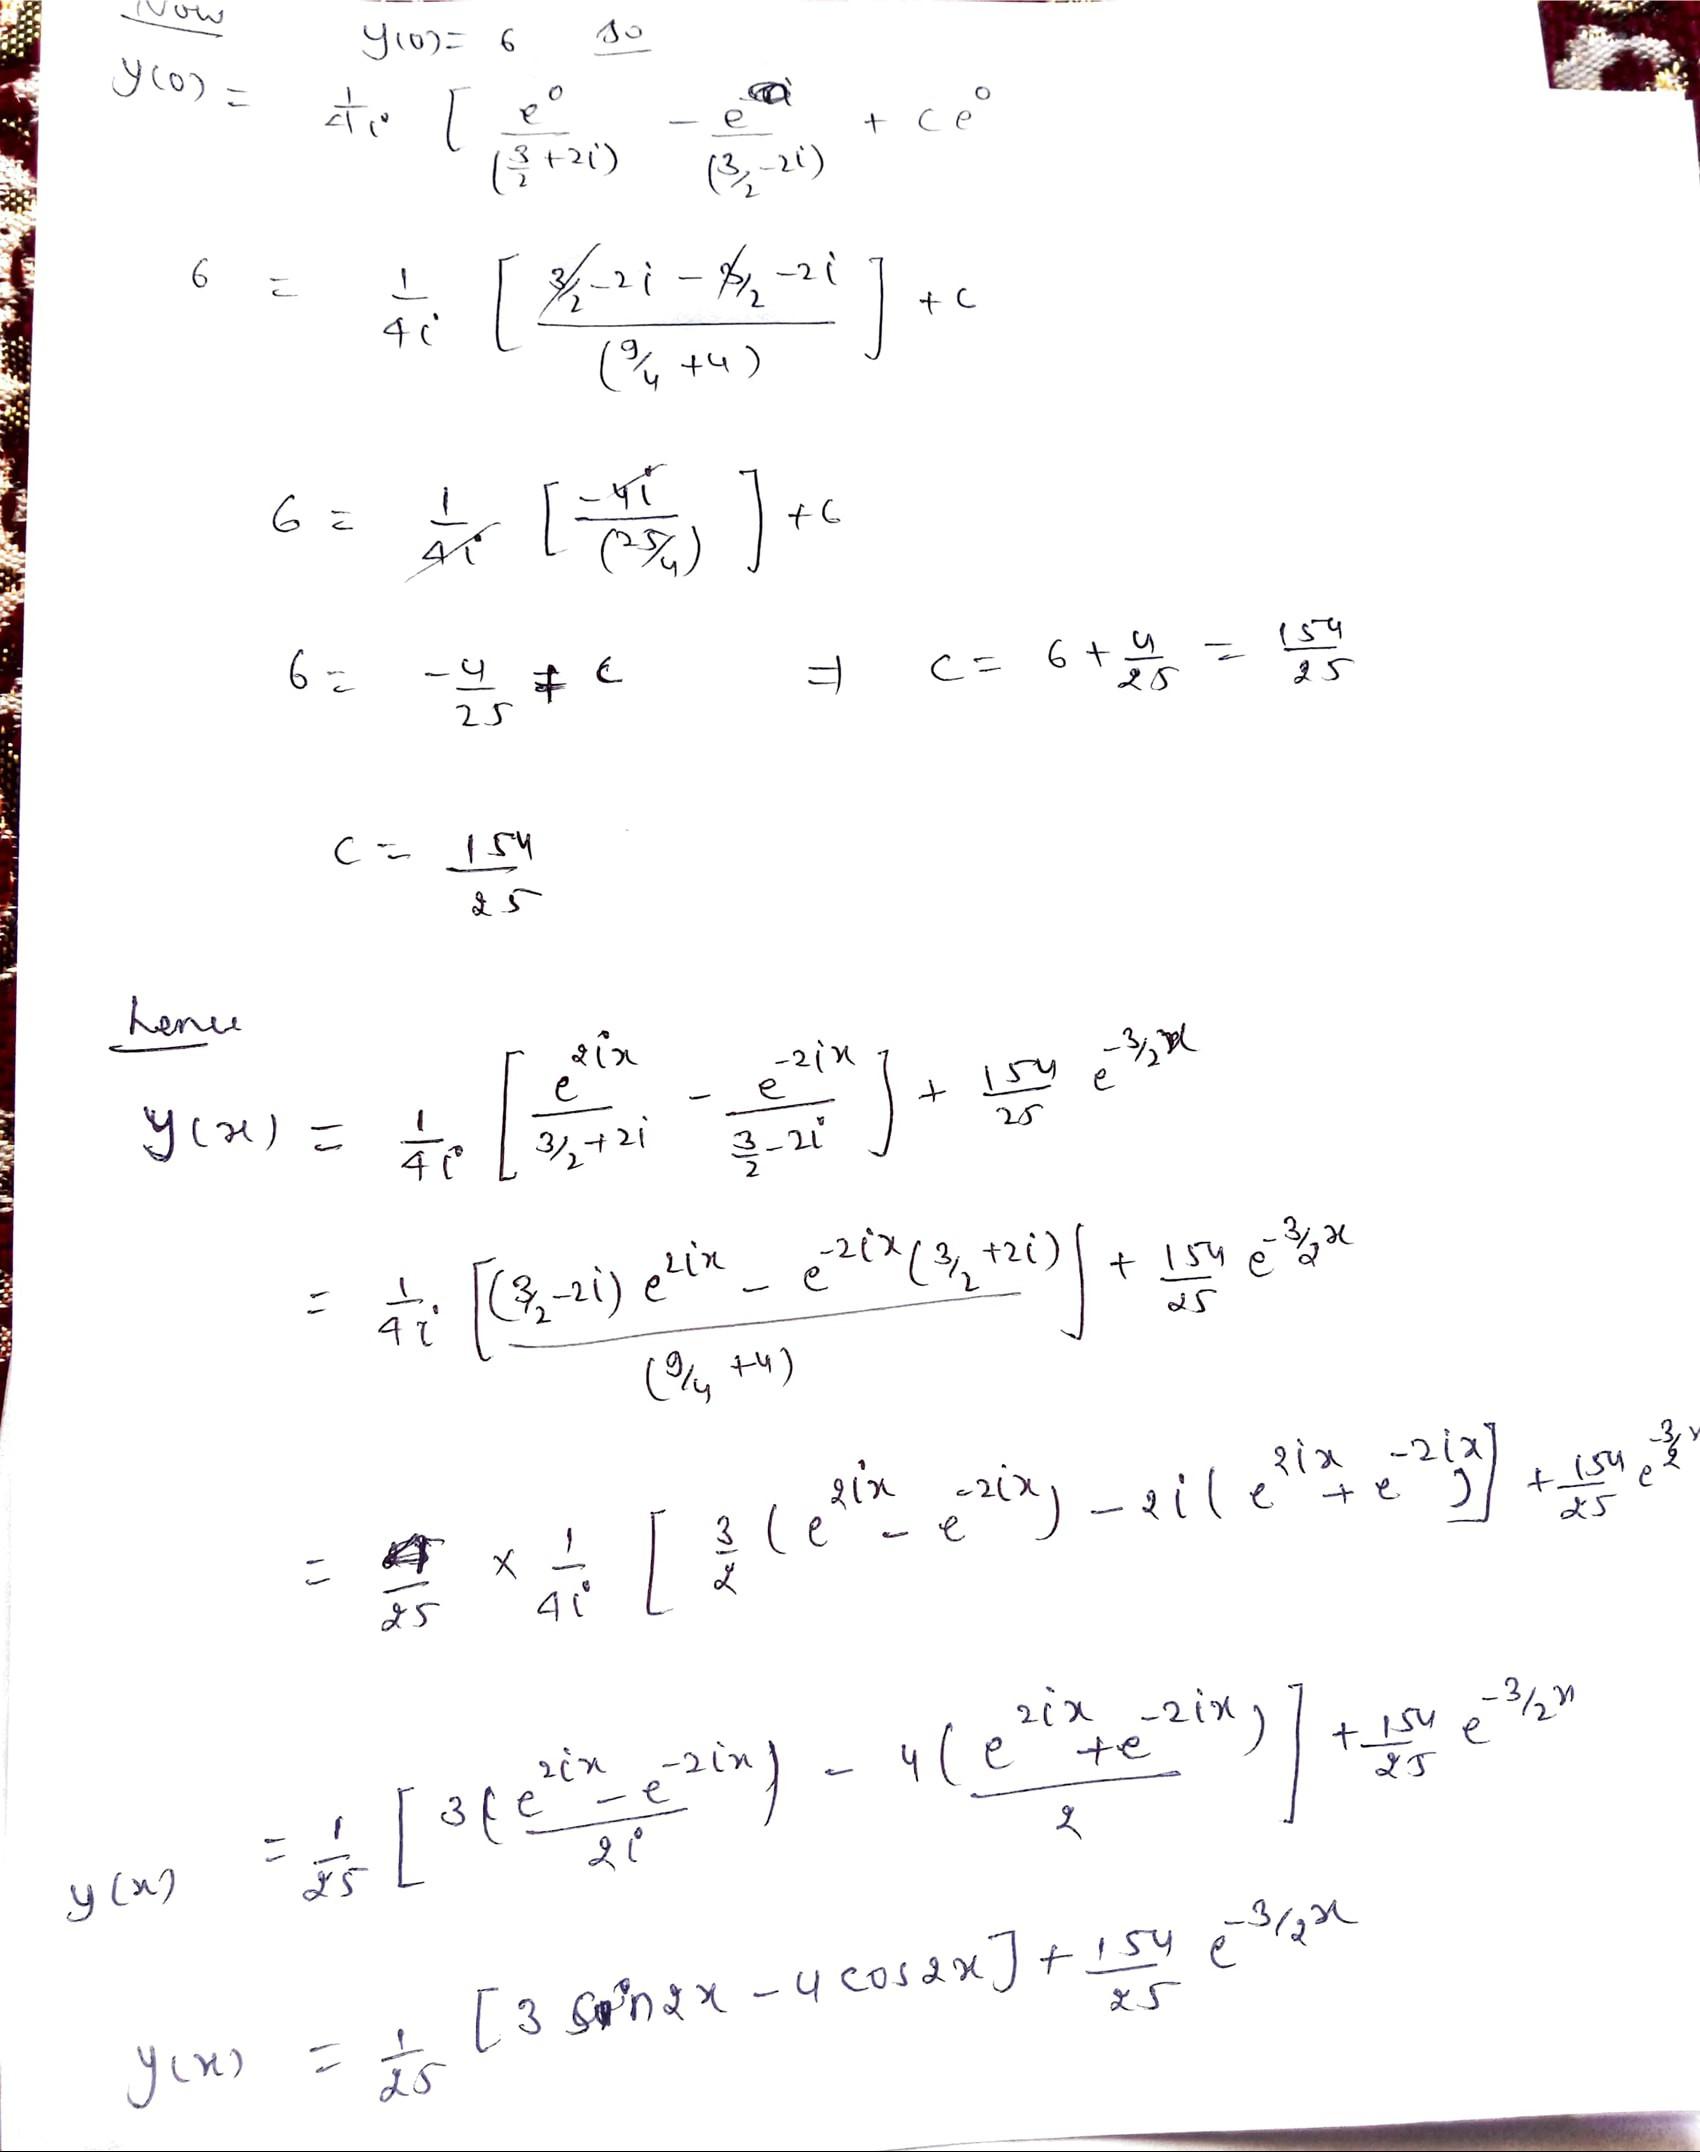 Now y(0) = 6 so
y(0) = 1/4i [ e^0/(3/2 + 2i) - e/(3/2 - 2i) + ce^0
6 = 1/4i [ (3/2 - 2i - 3/2 - 2i)/(9/4 + 4) ] + c
6 = 1/4i [ -4i/(25/4) ] + c
6 = -4/25 + c ⇒ c = 6 + 4/25 = 154/25
c = 154/25
hence
y(x) = 1/4i [ e^{2ix}/(3/2 + 2i) - e^{-2ix}/(3/2 - 2i) ] + 154/25 e^{-3/2 x}
= 1/4i [ ((3/2 - 2i) e^{2ix} - e^{-2ix} (3/2 + 2i))/(9/4 + 4) ] + 154/25 e^{-3/2 x}
= 4/25 × 1/4i [ 3/2 (e^{2ix} - e^{-2ix}) - 2i (e^{2ix} + e^{-2ix}) ] + 154/25 e^{-3/2 x}
y(x) = 1/25 [ 3 (e^{2ix} - e^{-2ix})/2i - 4 (e^{2ix} + e^{-2ix})/2 ] + 154/25 e^{-3/2 x}
y(x) = 1/25 [3 sin2x - 4 cos2x] + 154/25 e^{-3/2 x}